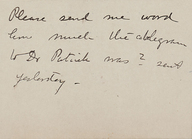 Please send me word
how much the telegram
to Dr Patrick was? sent
yesterday -